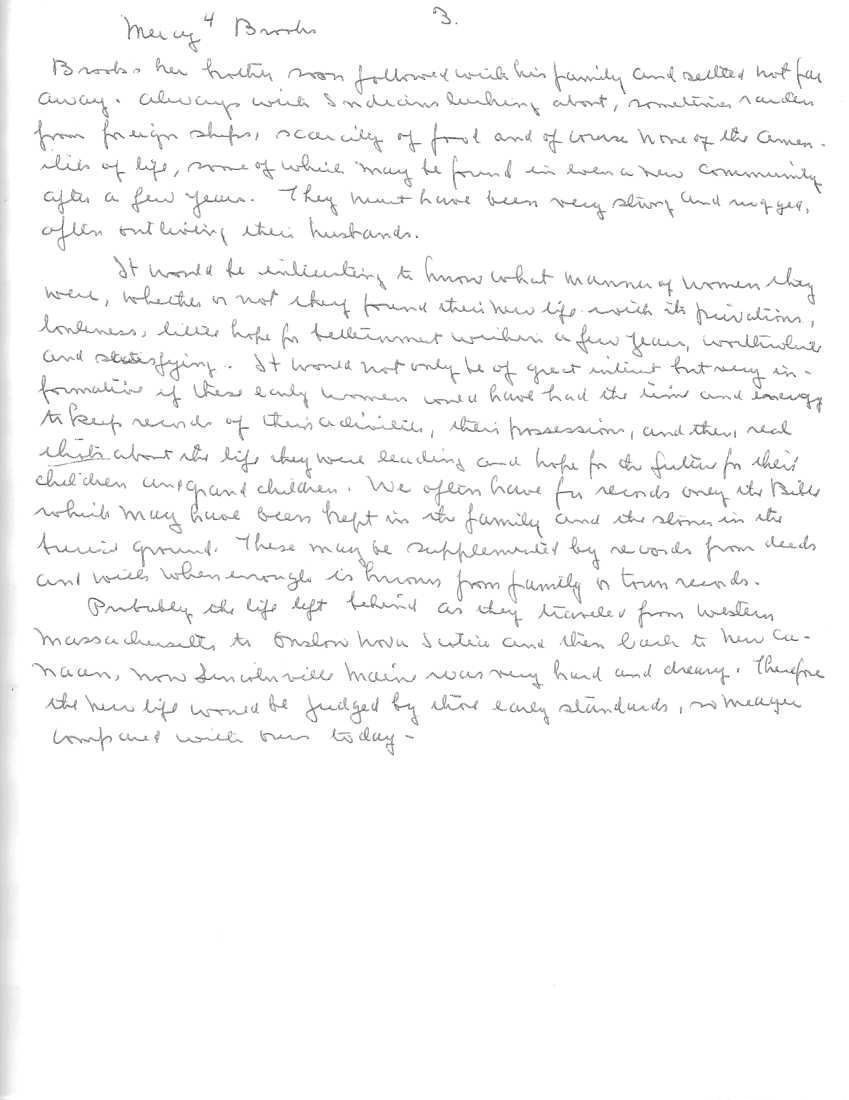 Mercy⁴ Brooks 3.
Brooks her brother soon followed with his family and settled not far
away. Always with Indians lurking about, sometimes raiders
from foreign ships, scarcity of food and of course none of the amen-
ities of life, some of which may be found in even a new community
after a few years. They must have been very strong and rugged,
often outliving their husbands.
It would be interesting to know what manner of women they
were, whether or not they found their new life with its privations,
loneliness, little hope for betterment within a few years, worthwhile
and satisfying. It would not only be of great interest but very in-
formative if these early women could have had the time and energy
to keep records of their activities, their possession, and their real
thots about the life they were leading and hope for the future for their
children and grandchildren. We often have for records only the Bible
which may have been kept in the family and the stones in the
burial ground. These may be supplemented by records from deeds
and wills when enough is known from family or town records.
Probably the life left behind as they traveled from western
Massachusetts to Onslow Nova Scotia and then back to New Ca-
naan, now Lincolnville Maine was very hard and dreary. Therefore
the new life would be judged by those early standards, so meager
compared with ours today -